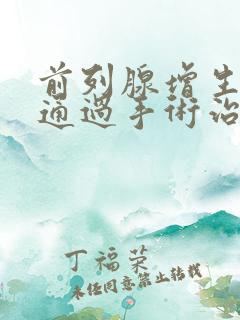 前列腺增生
通過手術治
丁福荣
未经同意禁止转载